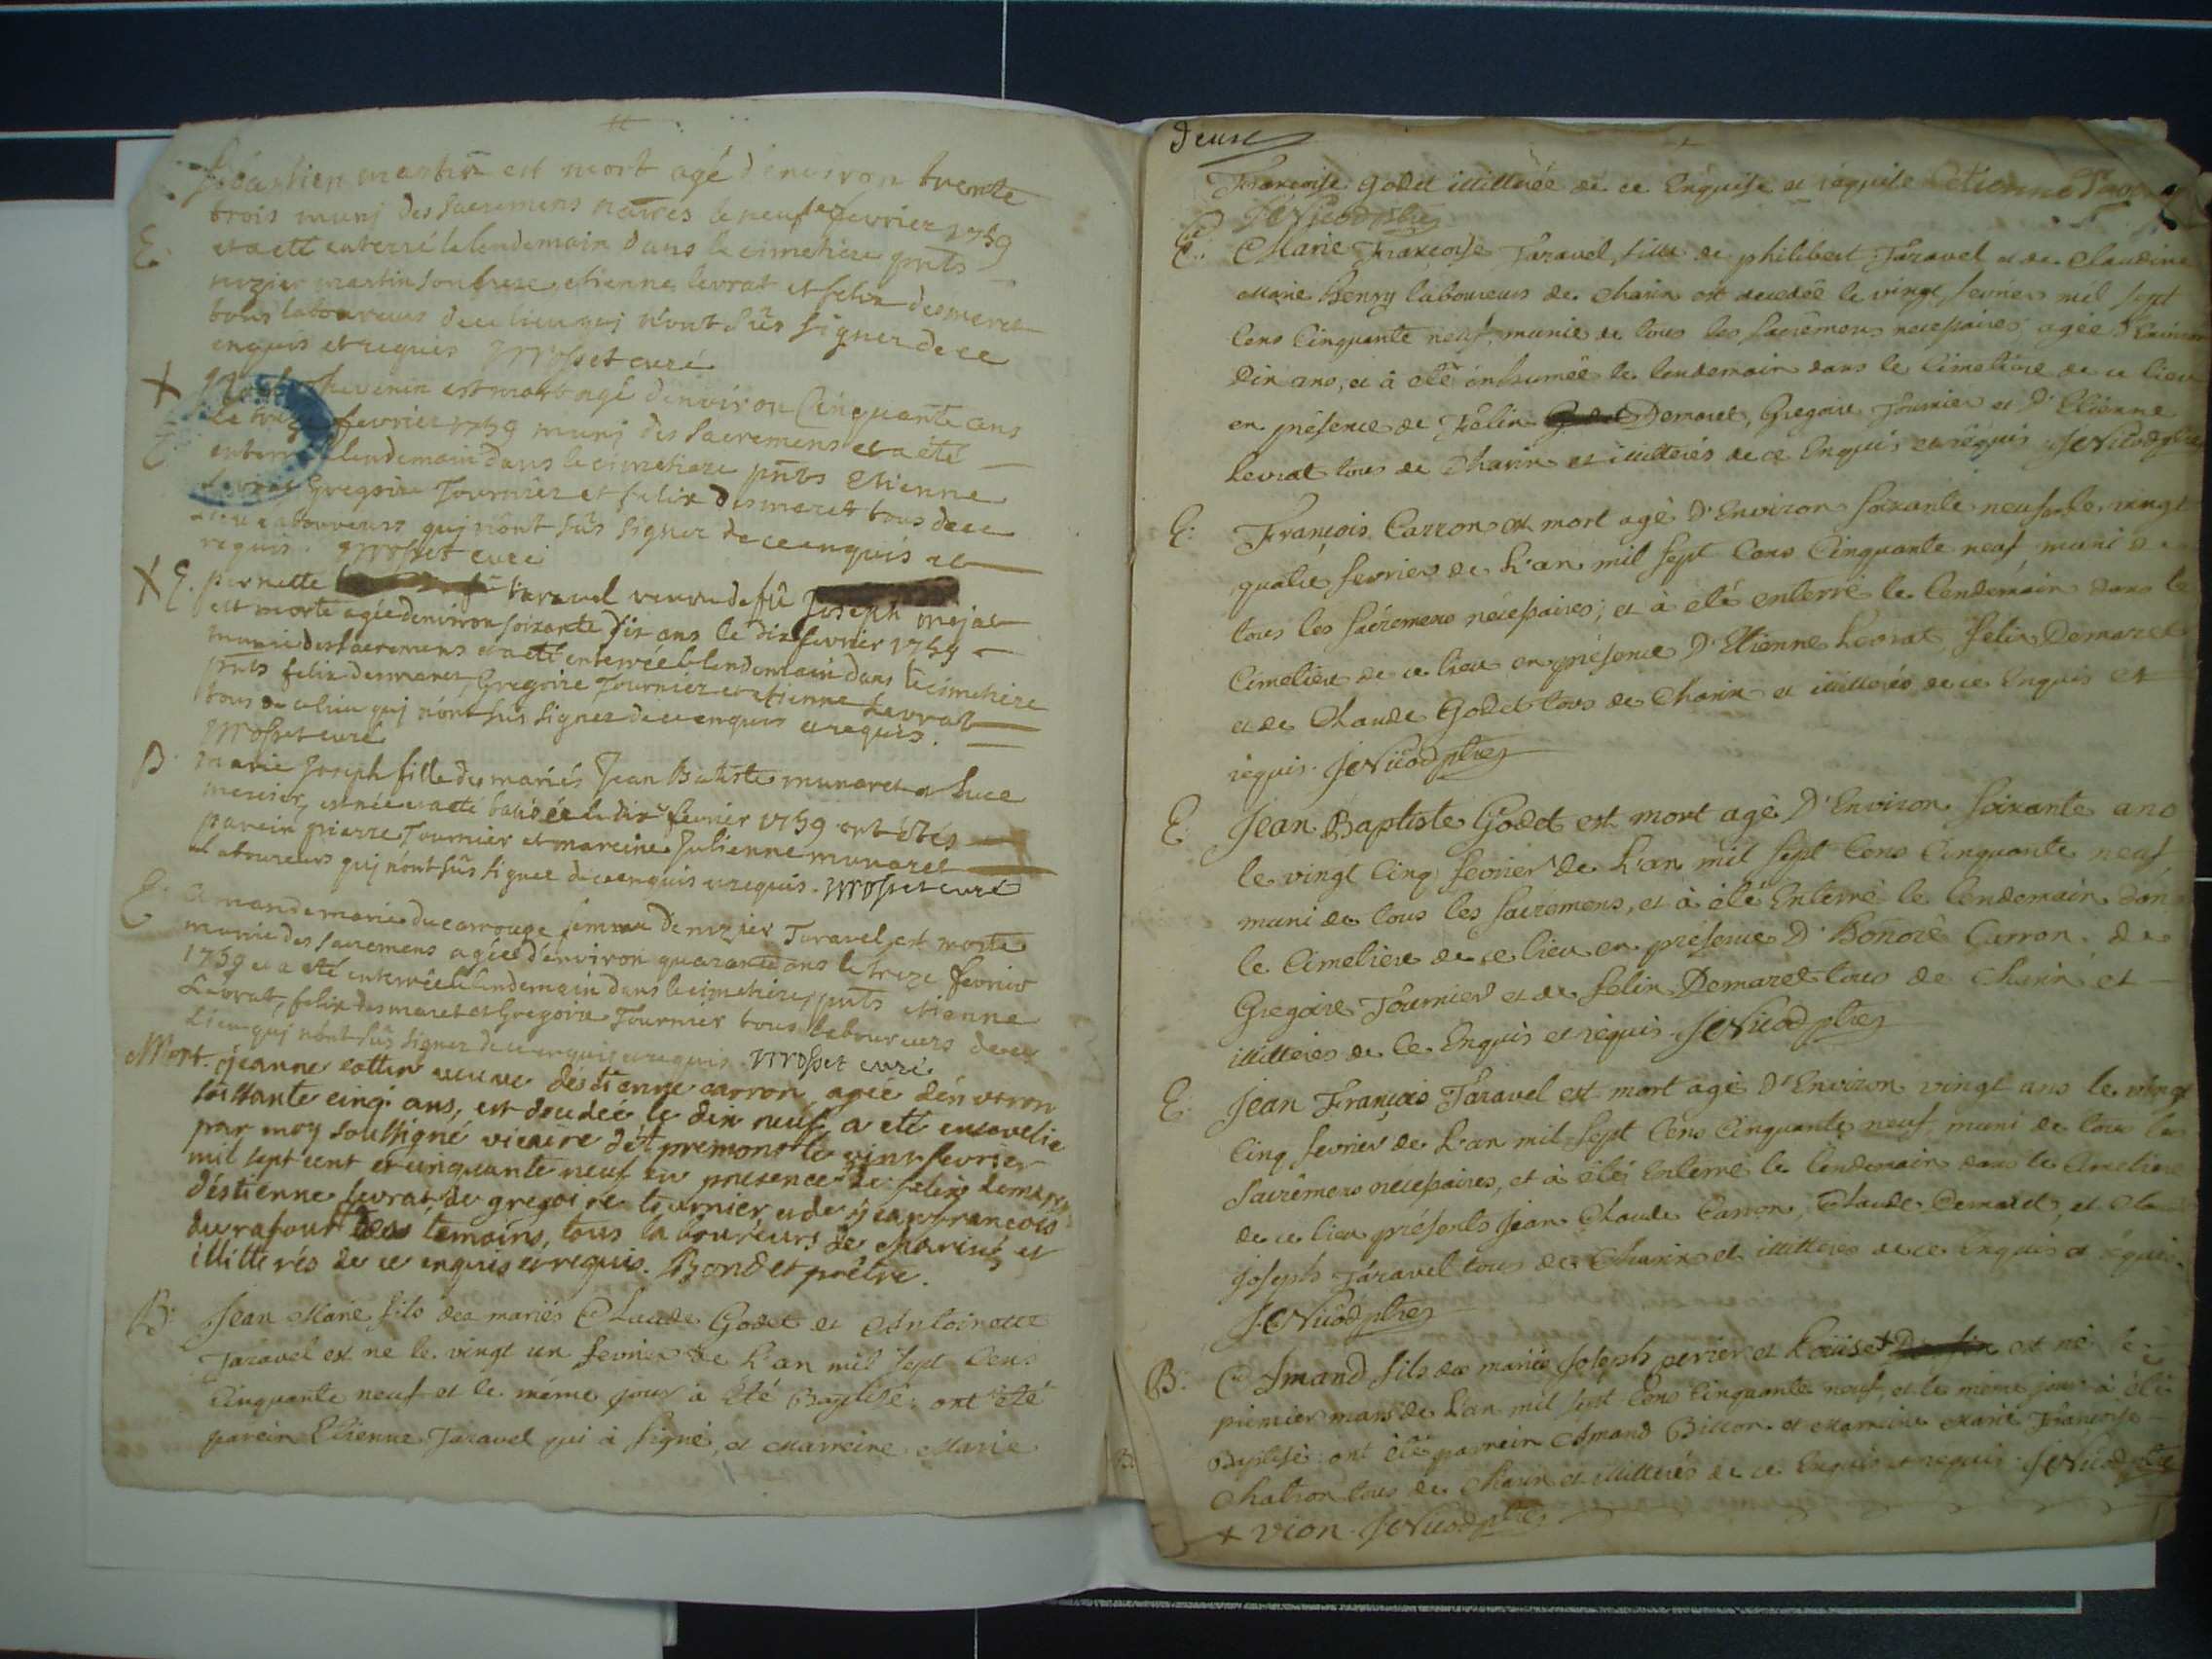 Sébastien martin est mort agé d'environ trente
trois munj des sacremens necres le neuf fevrier 1759
E. et a eté enterré le lendemain dans le cimetiere pnts
nizier martin son frere, etienne levrat et felix desmaret
tous laboureurs de ce lieu qui n'ont sûs signer de ce
enquis et requis Mosset curé
X thevenin est mort agé d'environ Cinquante ans
le fevrier 1759 munj des sacremens et a eté
E. enterré le lendemain dans le cimetiere pnts Etienne
Levrat Gregoire Tournier et felix desmaret tous de ce
lieu laboureurs quj n'ont sûs signer de ce enquis et
requis. Mosset curé
X E. pernette taravel veuve de fû Joseph
est morte agée d'environ soixante dix ans le dix fevrier 1759
munie des sacremens et a eté enterrée le lendemain dans le cimetiere
pnts felix desmaret, Gregoire Tournier et etienne Levrat
tous de ce lieu quj n'ont sus signer de ce enquis et requis.
Mosset curé
B. Marie Joseph fille des mariés Jean Batiste munaret et Luce
mercier, est née et a eté batisée le dix fevrier 1759 ont étés
parein pierre Tournier et mareine Julienne munaret
laboureurs quj n'ont sûs signer de ce enquis et requis. Mosset curé
E. Amande marie ducarrouge femme de nizier Taravel est morte
munie des sacremens agée d'environ quarante ans le treze fevrier
1759 et a eté enterrée le lendemain dans le cimetiere, pnts etienne
Levrat, felix desmaret et Gregoire Tournier tous laboureurs de ce
Lieu quj n'ont sûs signer de ce enquis et requis. Mosset curé
Mort. jeanne cottin veuve d'estienne carron, agée d'environ
soissante cinq ans, est decedée le dix neuf, a eté ensevelie
par moy soussigné vicaire d'Apremont le vint fevrier
mil sept cent et cinquante neuf en presence de felix demaret
d'estienne levrat de gregoire tournier et de jean francois
durafour temoins, tous laboureurs de charix, et
illitterés de ce enquis et requis. Bondet prêtre.
B. Jean Marie fils des mariés Claude Godet et Antoinette
Taravel est né le vingt un fevrier de L'an mil sept Cens
Cinquante neuf et le même jour à Eté Baptisé: ont été
parein Etienne Taravel qui à signé, et Marreine Marie
Deux
Françoise Godet illitterée de ce Enquise et requise Estienne
JC Nicod ptre
E. Marie Françoise Taravel, fille de philibert Taravel et de Claudine
Marie Henry laboureurs de Charix est decedée le vingt fevrier mil sept
Cens Cinquante neuf, munie de tous les sacrêmens necessaires agée d'Environ
Dix ans, et à eté inhumée le lendemain dans le Cimetiere de ce lieu
en présence de Felix Demaret, Gregoire Tournier et D'Etienne
Levrat tous de Charix et illitterés de ce Enquis et requis JC Nicod ptre
E. François Carron est mort agé D'Environ soixante neuf ans le vingt
quatre fevrier de L'an mil sept Cens Cinquante neuf muni de
tous les sacremens nécessaires; et à eté enterré le lendemain dans le
Cimetiere de ce lieu en présence D'Etienne Levrat, Felix Demaret
et de Claude Godet tous de Charix et illitterés de ce Enquis et
requis. JC Nicod ptre
E. Jean Baptiste Godet est mort agé D'Environ soixante ans
le vingt Cinq fevrier de L'an mil sept Cens Cinquante neuf
muni de tous les sacremens, et à eté Enterré le lendemain dans
le Cimetiere de ce lieu en présence D'Honoré Carron. de
Gregoire Tournier et de felix Demaret tous de Charix et
illitterés de ce Enquis et requis JC Nicod ptre
E. Jean François Taravel est mort agé D'Environ vingt ans le vingt
Cinq fevrier de L'an mil sept Cens Cinquante neuf muni de tous les
sacrêmens nécessaires, et à eté Enterré le lendemain dans le Cimetiere
de ce lieu présents Jean Claude Carron, Claude Demaret, et Claude
joseph Taravel tous de Charix et illitterés de ce Enquis et requis.
JC Nicod ptre
B. Amand fils des mariés Joseph perrier et Loüise + est né le
premier mars de L'an mil sept Cens Cinquante neuf, et le meme jour à été
Baptisé: ont été parrein Amand Billon et Marreine Marie Françoise
Chatron tous de Charix et illitterés de ce Enquis et requis JC Nicod ptre
+ vion. JC Nicod ptre